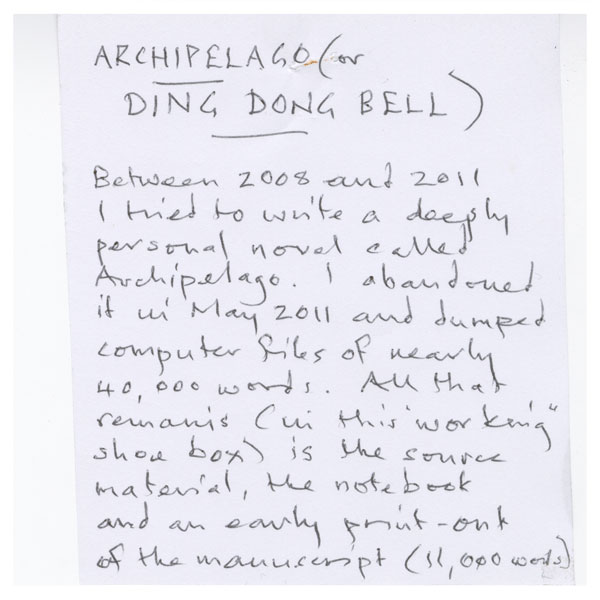 ARCHIPELAGO (or
DING DONG BELL)
Between 2008 and 2011
I tried to write a deeply
personal novel called
Archipelago. I abandoned
it in May 2011 and dumped
computer files of nearly
40,000 words. All that
remains (in this "working"
shoe box) is the source
material, the notebook
and an early print-out
of the manuscript (11,000 words)